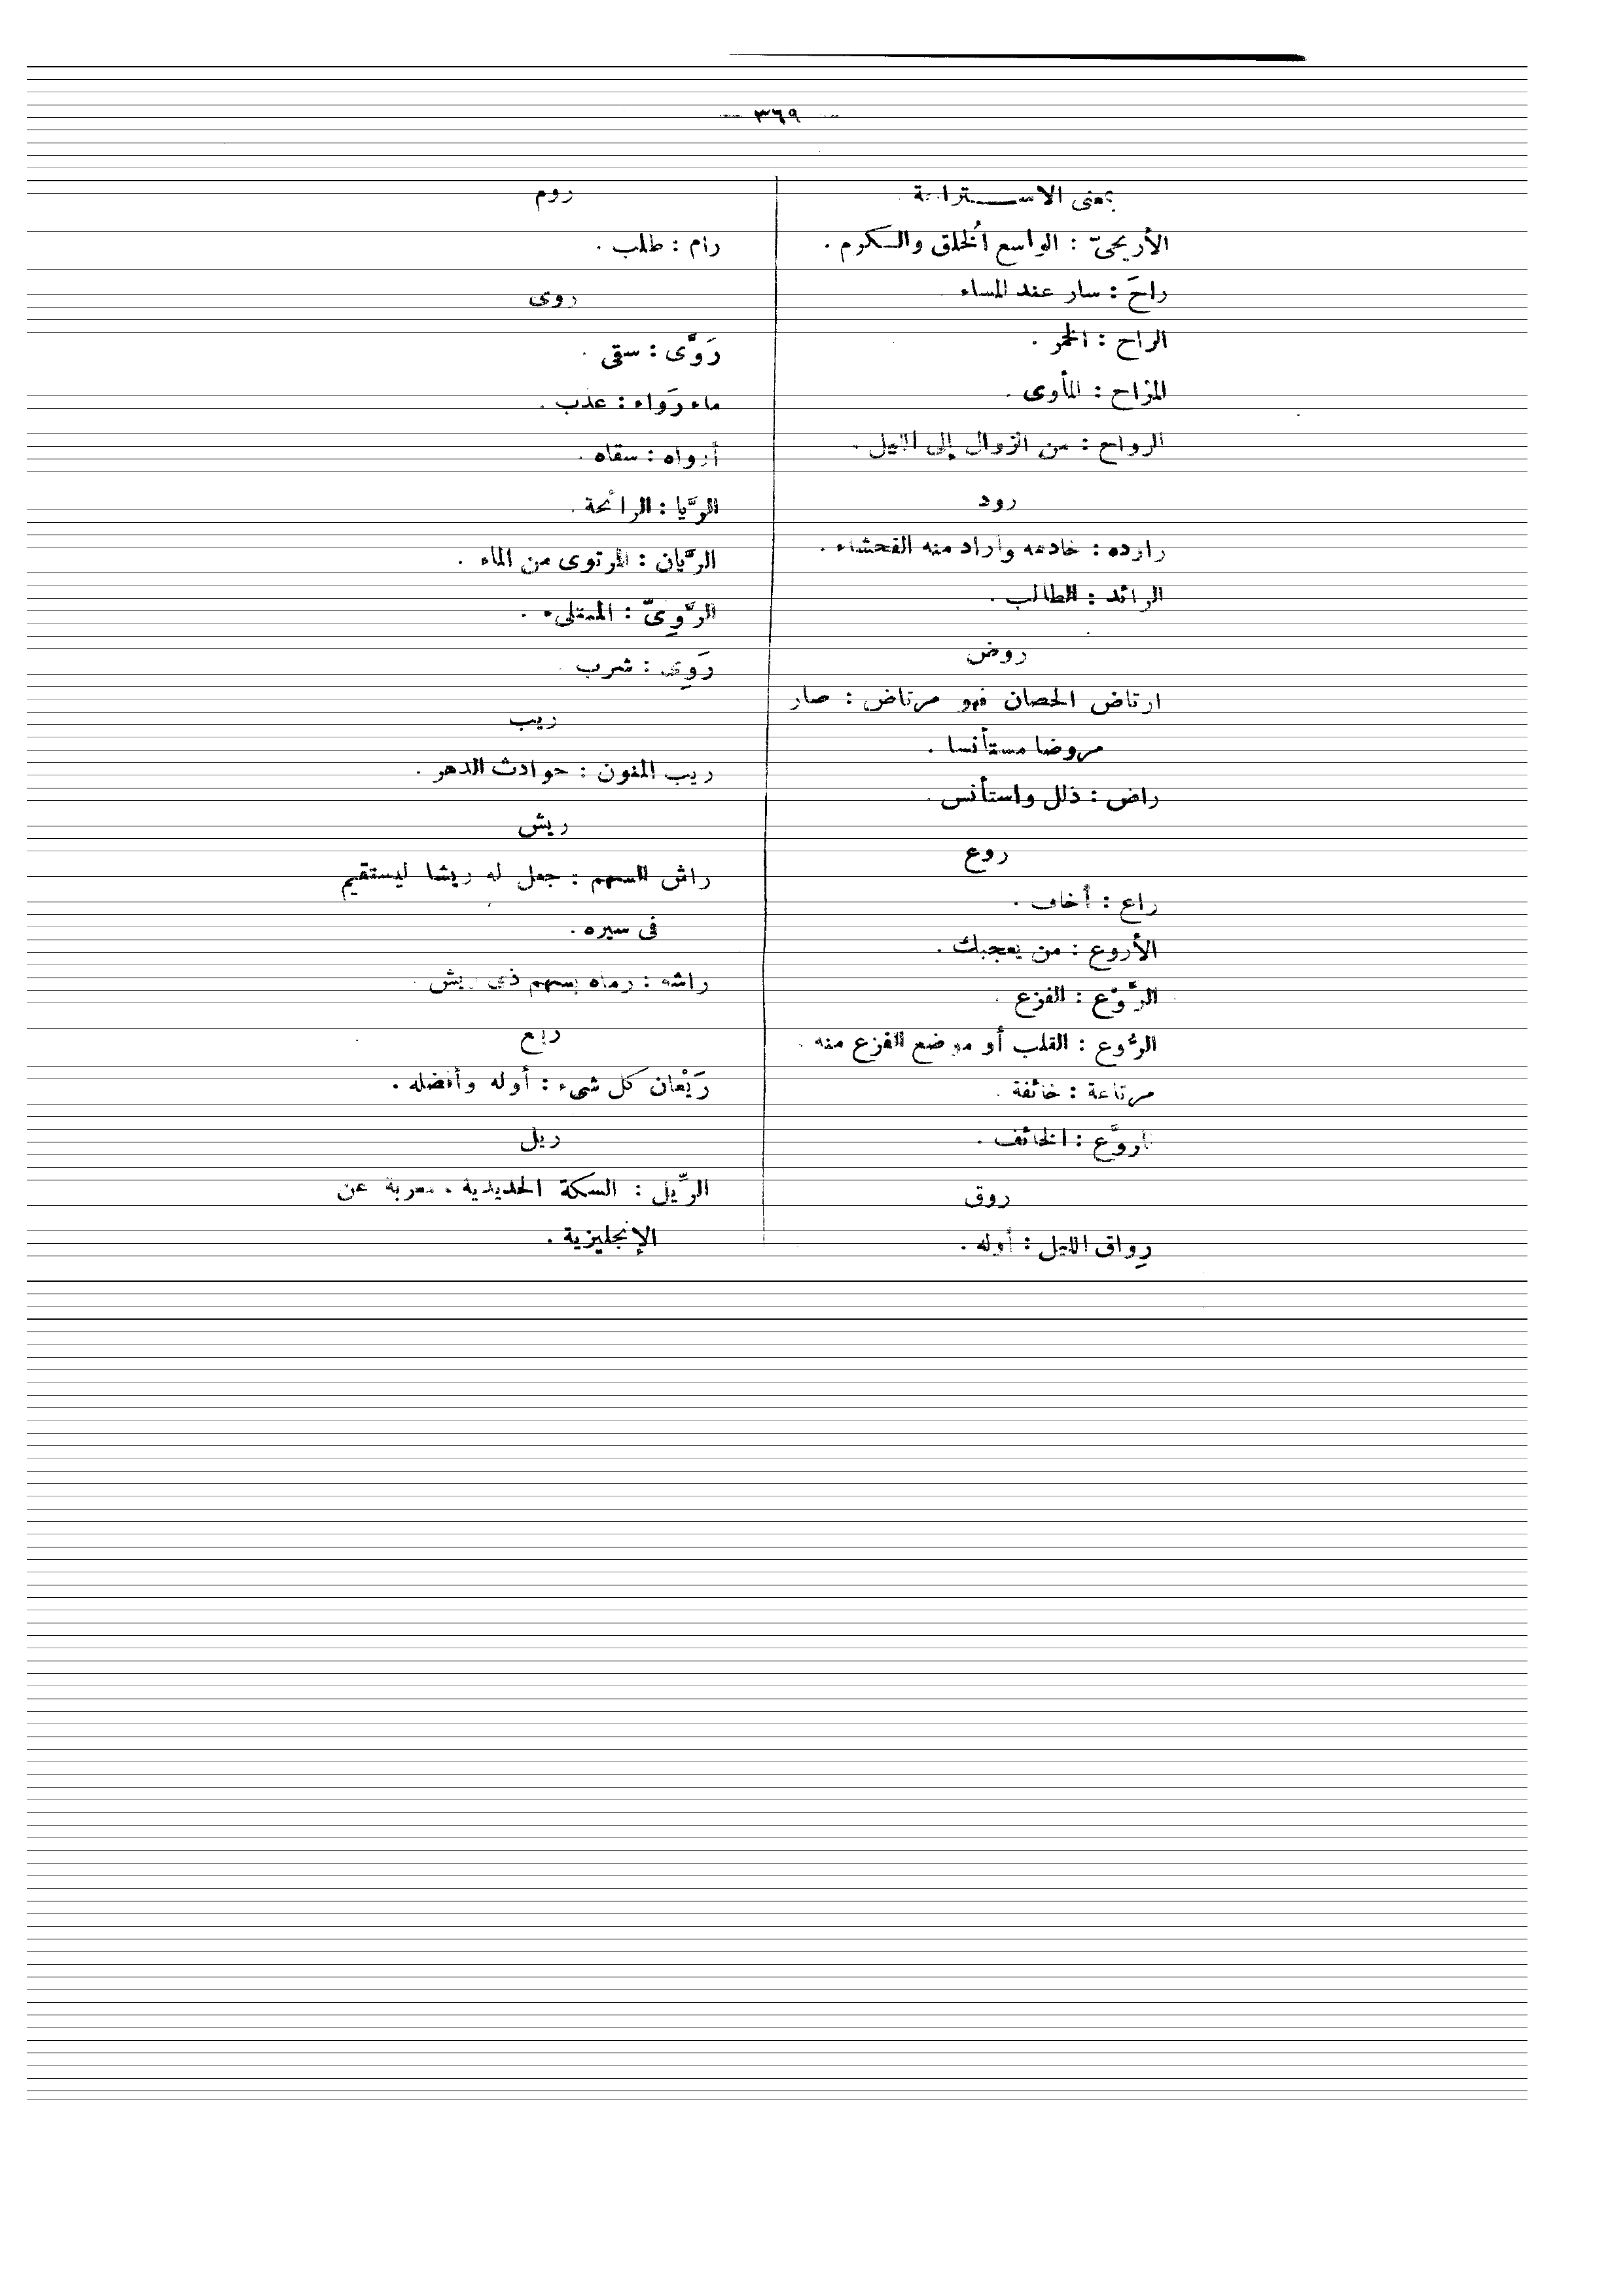 — ٣٦٩ —
بمعنى الاستراحة
الأريحىّ : الواسع الخُلق والكرم .
راحَ : سار عند المساء
الراح : الخمر .
المراح : المأوى .
الرواح : من الزوال إلى الليل .
رود
راوده : خادعه وأراد منه الفحشاء .
الرائد : الطالب .
روض
ارتاض الحصان فهو مرتاض : صار
مروضا مستأنسا .
راض : ذلل واستأنس .
روع
راع : أخاف .
الأروع : من يعجبك .
الرَّوْع : الفزع .
الرُوع : القلب أو موضع الفزع منه .
مرتاعة : خائفة .
المروَّع : الخائف .
روق
رِواق الليل : أوله .
روم
رام : طلب .
روى
رَوَّى : سقى .
ماء رَواء : عذب .
أرواه : سقاه .
الرَّيا : الرائحة .
الرَّيان : المرتوى من الماء .
الرَّوِىّ : الممتلىء .
رَوِى : شرب .
ريب
ريب المنون : حوادث الدهر .
ريش
راش السهم : جعل له ريشا ليستقيم
فى سيره .
راشه : رماه بسهم ذى ريش .
ريع
رَيْعان كل شىء : أوله وأفضله .
ريل
الرِّيل : السكة الحديدية . معربة عن
الإنجليزية .